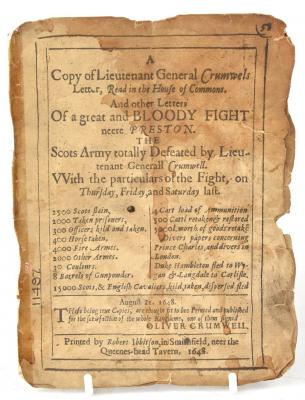 58
A
Copy of Lieutenant General Crumwels
Letter, Read in the House of Commons.
And other Letters
Of a great and BLOODY FIGHT
neere PRESTON.
THE
Scots Army totally Defeated by Lieu-
tenant Generall Crumwell.
VVith the particulars of the Fight, on
Thursday, Friday, and Saturday last.
2500 Scots slain,
2000 Taken prisoners,
300 officers kild and taken.
400 Horse taken,
4000 Fire Armes.
2000 Other Armes.
Coulours.
8 Barrels of Gunpowder.
4 Cart load of ammunition
300 Cattl retaken & restored
500 l. worth of goods retake
Divers papers concerning
Prince Charles, and divers in
London.
Duke Hambleton fled to
& Langdale to Carlisle,
15000 Scots, & English Cavaliers, kild, taken, dispersed & fled
August 21. 1648.
These being true Copies, are thought fit to bee Printed and published
for the satisfaction of the whole Kingdome, one of them signed
OLIVER CRUMWELL.
Printed by Robert Ibbitson, in Smithfield, neer the
Queenes-head Tavern, 1648.
11497